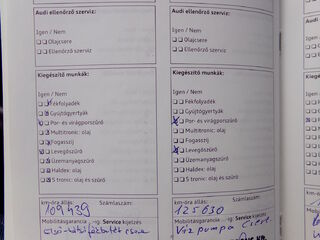 Audi ellenőrző szerviz:
Igen / Nem
Olajcsere
Ellenőrző szerviz
Kiegészítő munkák:
Igen / Nem
Fékfolyadék
Gyújtógyertyák
Por- és virágporszűrő
Multitronic: olaj
Fogasszíj
Levegőszűrő
Üzemanyagszűrő
Haldex: olaj
S tronic: olaj és szűrő
km-óra állás: Számlaszám:
109439
Mobilitásgarancia -ig. Service kijelzés
első-hátsó fázbetét csere
Audi ellenőrző szerviz:
Igen / Nem
Olajcsere
Ellenőrző szerviz
Kiegészítő munkák:
Igen / Nem
Fékfolyadék
Gyújtógyertyák
Por- és virágporszűrő
Multitronic: olaj
Fogasszíj
Levegőszűrő
Üzemanyagszűrő
Haldex: olaj
S tronic: olaj és szűrő
km-óra állás: Számlaszám:
125630
Mobilitásgarancia -ig. Service kijelzés
Vízpumpa csere